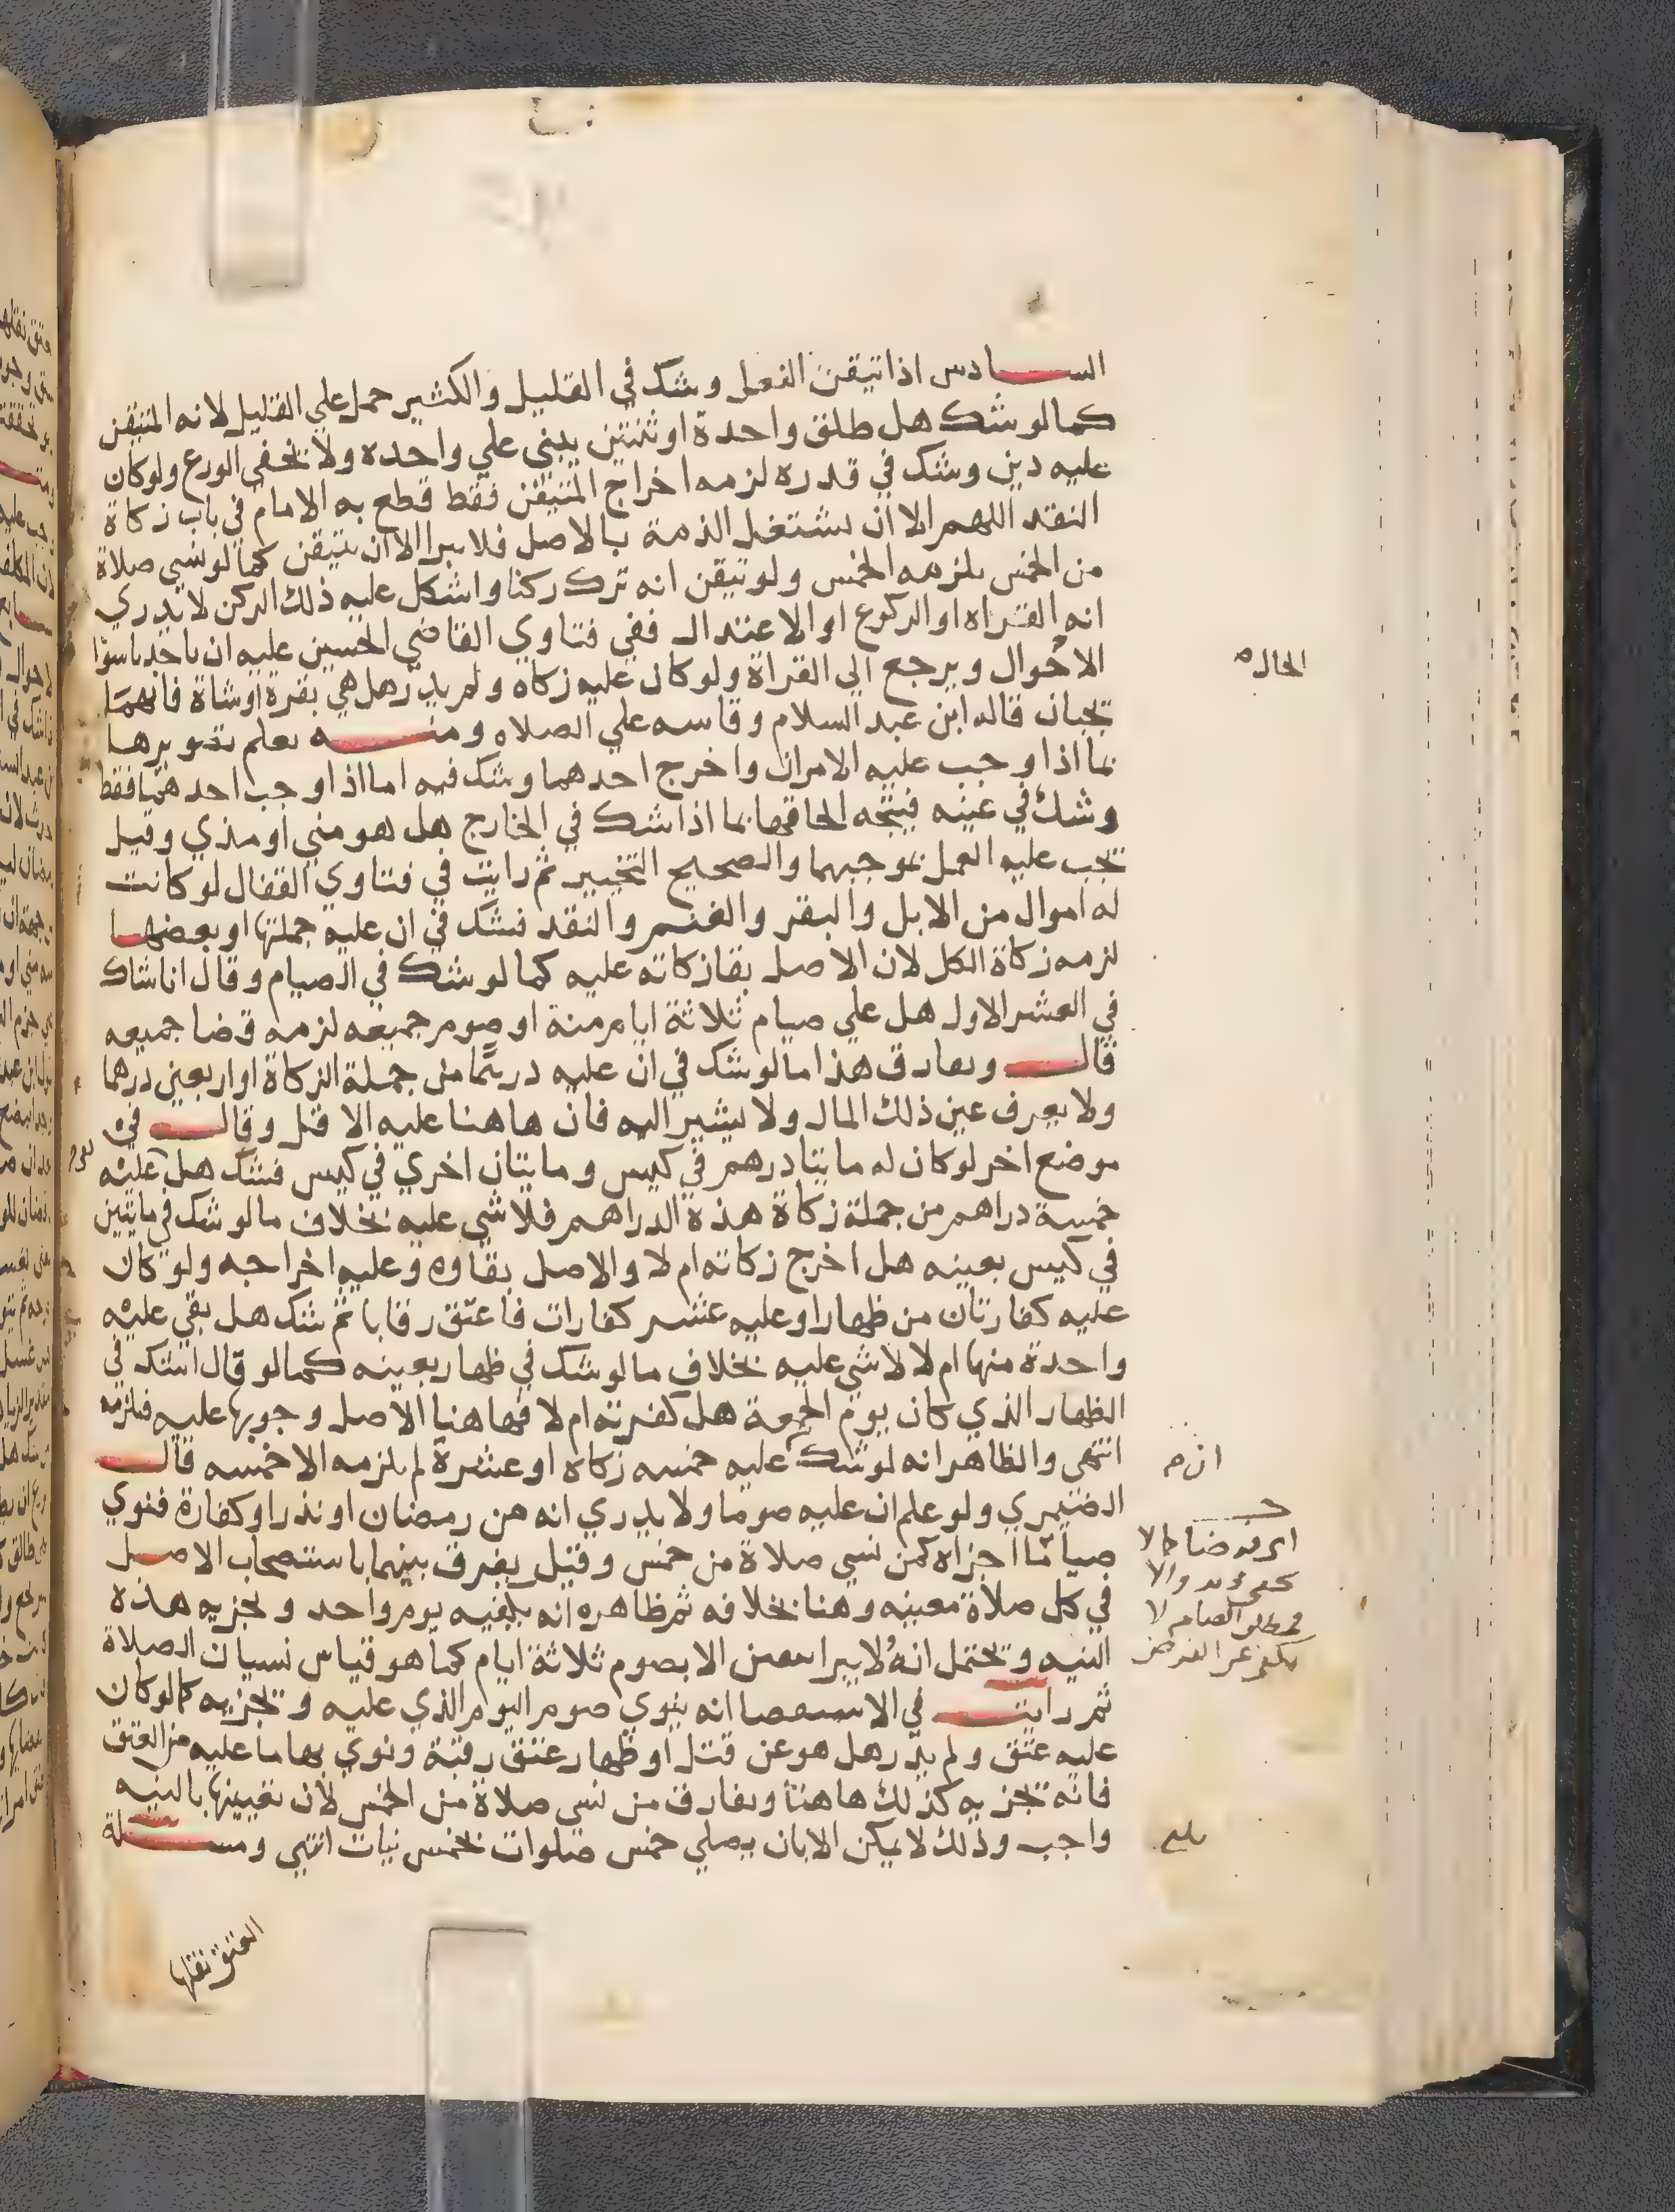 السادس اذا تيقن الفعل وشك في القليل والكثير حمل علي القليل لانه المتيقن
كما لو شك هل طلق واحدة او ثنتين يبني علي واحده ولا يخفى الورع ولو كان
عليه دين وشك في قدره لزمه اخراج المتيقن فقط قطع به الامام في باب زكاة
النقد اللهم الا ان يشتغل الذمة بالاصل فلا يبرا الا ان يتيقن كما لو نسي صلاة
من الخمس يلزمه الخمس ولو تيقن انه ترك ركنا واشكل عليه ذلك الركن لا يدري
انه القراه او الركوع او الاعتدال ففي فتاوي القاضي الحسين عليه ان ياخد باسوا
الاحوال ويرجع الى القراة ولو كان عليه زكاه ولم يدر هل هي بقرة او شاة فانهما
تجبان قاله ابن عبد السلام وقاسه علي الصلاه ومنه يعلم تصويرها
بما اذا وجب عليه الامران واخرج احدهما وشك فيه اما اذا وجب احدهما فقط
وشك في عينه فيتجه الحاقها بما اذا شك في الخارج هل هو مني او مذي وقيل
تجب عليه العمل بموجبهما والصحيح التخيير ثم رايت في فتاوي القفال لو كانت
له اموال من الابل والبقر والغنم والنقد فشك في ان عليه جملتها او بعضها
لزمه زكاة الكل لان الاصل بقا زكاته عليه كما لو شك في الصيام وقال انا شاك
في العشر الاول هل علي صيام ثلاثة ايام منة او صوم جميعه لزمه قضا جميعه
قال ويفارق هذا ما لو شك في ان عليه درهما من جملة الزكاة او اربعين درهما
ولا يعرف عين ذلك المال ولا يشير اليه فان هاهنا عليه الاقل وقال في
موضع اخر لو كان له مايتا درهم في كيس ومايتان اخري في كيس فشك هل عليه
خمسة دراهم من جملة زكاة هذه الدراهم فلا شي عليه بخلاف ما لو شك في مايتين
في كيس بعينه هل اخرج زكاته ام لا والاصل بقاوه وعليه اخراجه ولو كان
عليه كفارتان من ظهار او عليه عشر كفارات فاعتق رقابا ثم شك هل بقي عليه
واحدة منها ام لا لا شي عليه بخلاف ما لو شك في ظهار بعينه كما لو قال اشك في
الظهار الذي كان يوم الجمعة هل كفرته ام لا فهاهنا الاصل وجوبها عليه فيلزمه
انتهى والظاهر انه لو شك عليه خمسه زكاه او عشرة لم يلزمه الا خمسه قال
الصيمري ولو علم ان عليه صوما ولا يدري انه من رمضان او نذر او كفارة فنوي
صياما اجزاه كمن نسي صلاة من خمس وقيل يفرق بينهما باستصحاب الاصل
في كل صلاة معينه وهنا بخلافه ثم ظاهره انه يكفيه يوم واحد وتجزيه هذه
النيه وتحتمل انه لا يبرا بيقين الا بصوم ثلاثة ايام كما هو قياس نسيان الصلاة
ثم رايت في الاستقصا انه ينوي صوم اليوم الذي عليه وتجزيه كما لو كان
عليه عتق ولم يدر هل هو عن قتل او ظهار عتق رقبة ونوي بها ما عليه من العتق
فانه تجزيه كذلك هاهنا ويفارق من نسي صلاة من الخمس لان تعيينها بالنيه
واجب وذلك لا يمكن الا بان يصلي خمس صلوات بخمس نيات انتهي ومسلة
العتق نقلها
الحال
ان